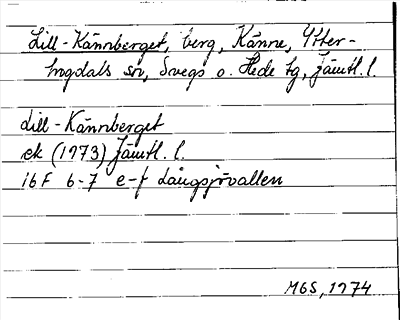 Lill-Kännberget, berg, Känne, Ytter-
hogdals sn, Svegs o. Hede tg, Jämtl. l.
Lill-Kännberget
ek (1973) Jämtl. l.
16F 6-7 e-f Långsjövallen
MGS, 1974